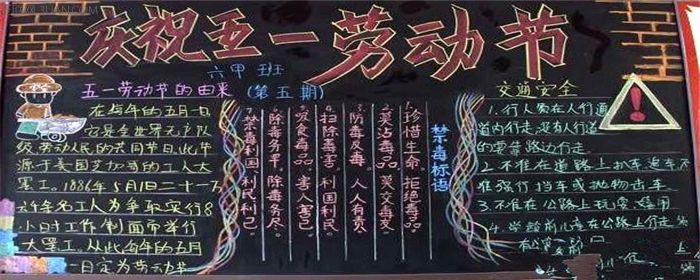 庆祝五一劳动节
六甲班
五一劳动节的由来 (第五期)
在每年的五月一日
它是全世界无产阶
级、劳动人民的共同节日。此节
源于美国芝加哥的工人大
罢工。1886年5月1日二十一万
六千余名工人为争取实行8
小时工作制而举行
大罢工。从此每年的五月
一日定为劳动节
禁毒标语
1.珍惜生命 拒绝毒品
2.莫沾毒品 莫交毒友
3.防毒反毒 人人有责
4.扫除毒害 利国利民
5.吸食毒品 害人害己
6.除毒务早 除毒务尽
7.禁毒利国、利民、利己。
交通安全
1.行人须在人行道
道内行走,没有人行道
的要靠路边行走
2.不准在道路上扒车、追车,不
准强行挡车或抛物击车
3.不准在公路上玩耍、嬉闹
4.学龄前儿童在公路上行走